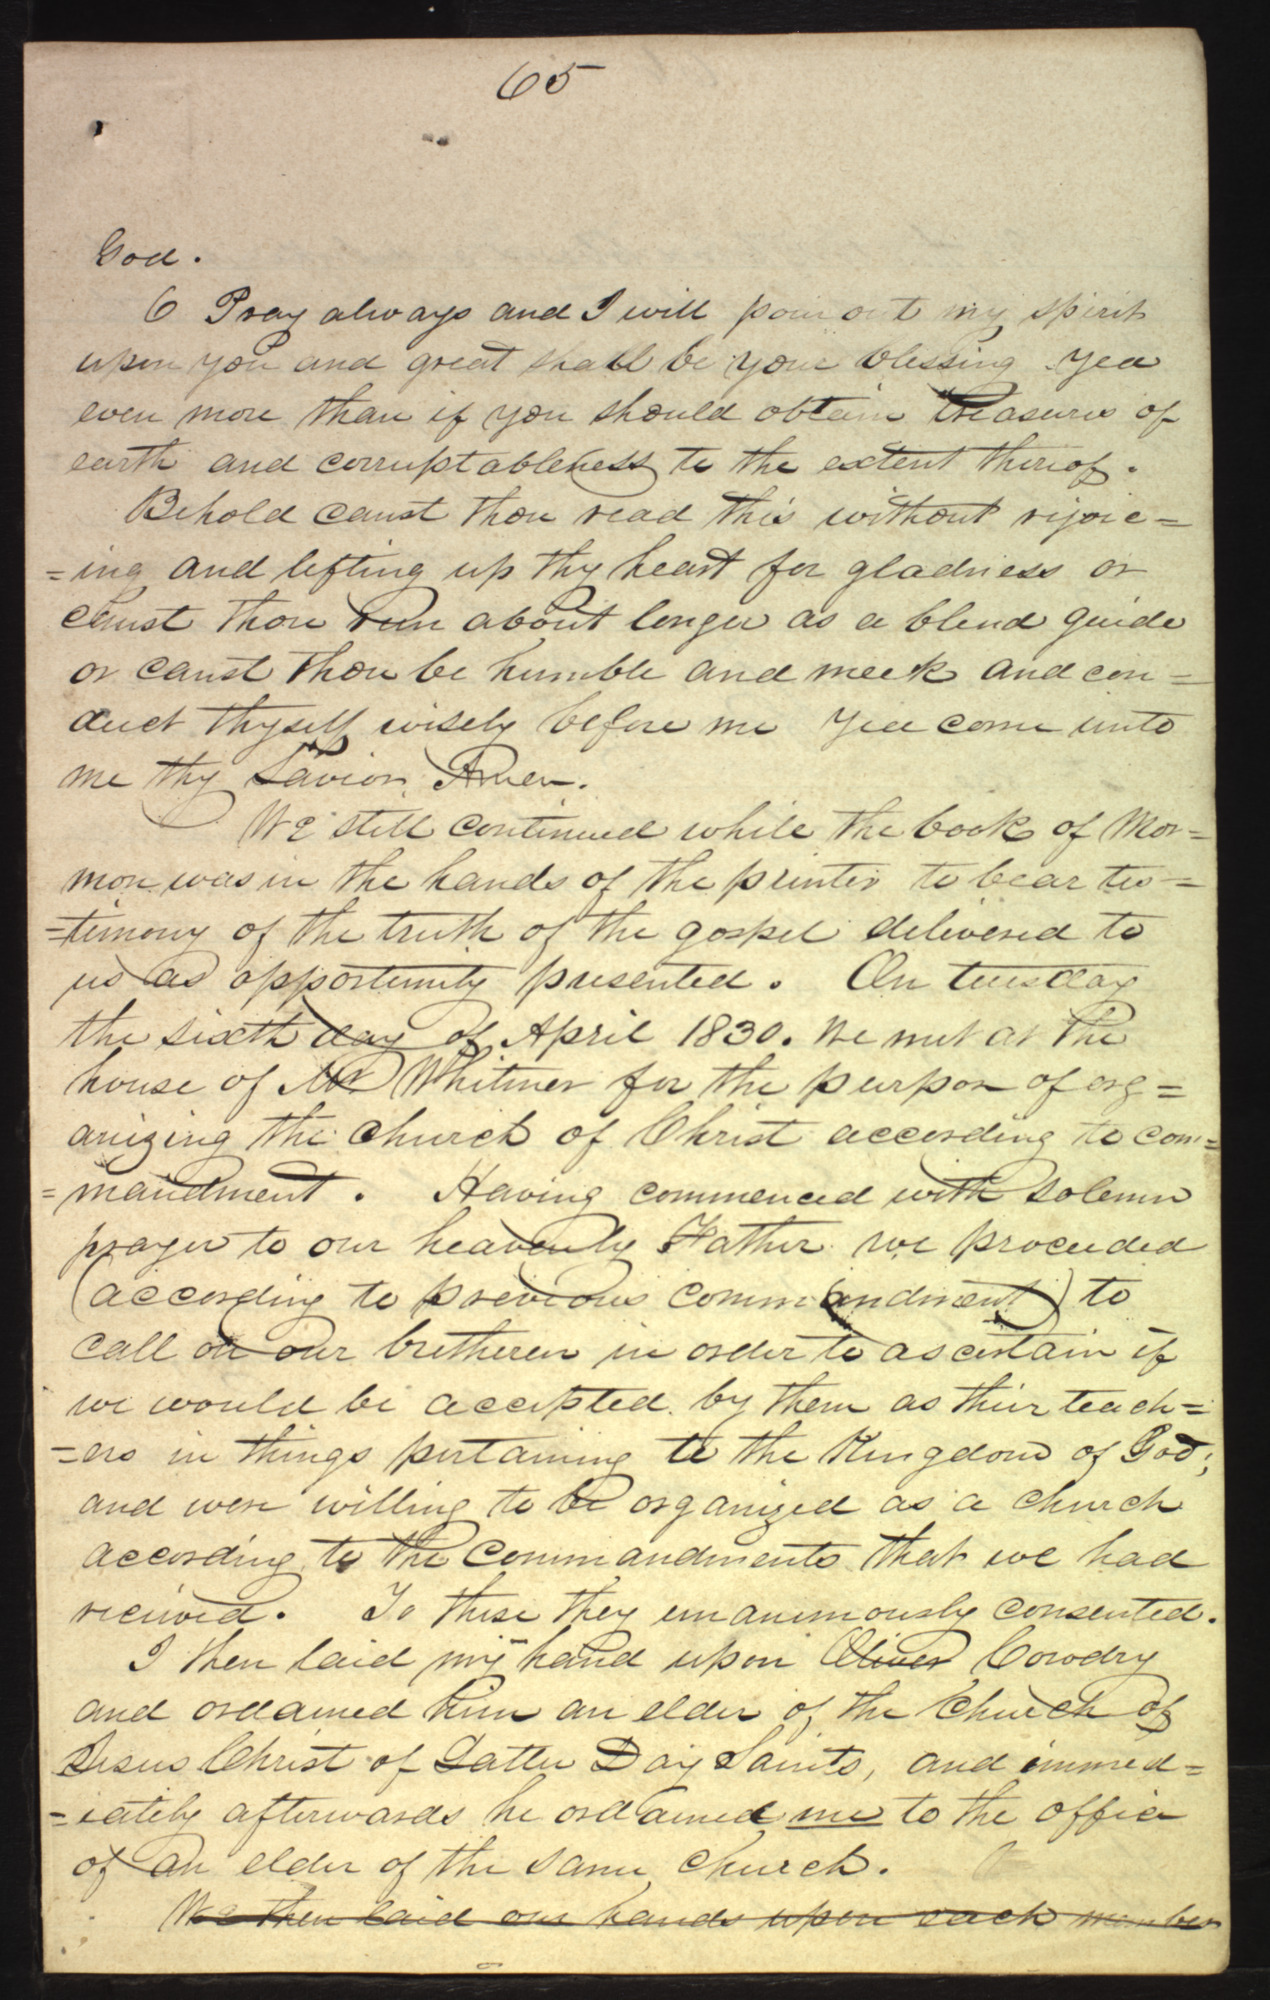 65
God.
6 Pray always and I will pour out my spirit
upon you and great shall be your blessing yea
even more than if you should obtain treasures of
earth and corruptableness to the extent thereof.
Behold canst thou read this without rejoic=
=ing and lifting up thy heart for gladness or
canst thou run about longer as a blind guide
or canst thou be humble and meek and con=
duct thyself wisely before me yea come unto
me thy Savior, Amen.
We still continued while the book of Mor=
mon was in the hands of the printer to bear tes=
=timony of the truth of the gospel delivered to
us as opportunity presented. On tuesday
the sixth day of April 1830. We met at the
house of Mr Whitmer for the purpose of org=
anizing the church of Christ according to com=
=mandment. Having commenced with solemn
prayer to our heavenly Father we proceeded
(according to previous commandment) to
call on our bretheren in order to ascertain if
we would be accepted by them as their teach=
=ers in things pertaining to the Kingdom of God;
and were willing to be organized as a church
according to the commandments that we had
received. To these they unanimously consented.
I then laid my hand upon Oliver Cowdry
and ordained him an elder of the church of
Jesus Christ of Latter Day Saints, and immed=
=iately afterwards he ordained me to the office
of an elder of the same church.
We then laid our hands upon each member